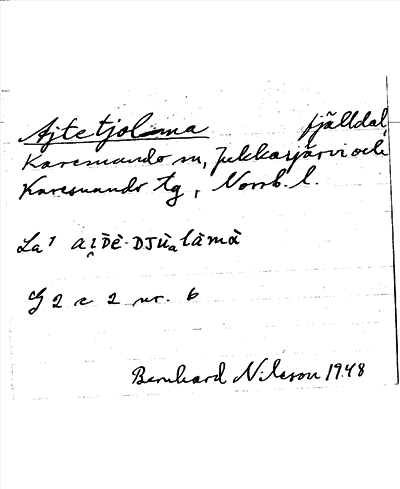 Ajtetjolma fjälldal,
Karesuando sn, Jukkasjärvi och
Karesuando tg, Norrb. l.
La 1
G 2 c 2 nr. 6
Bernhard Nilsson 1948